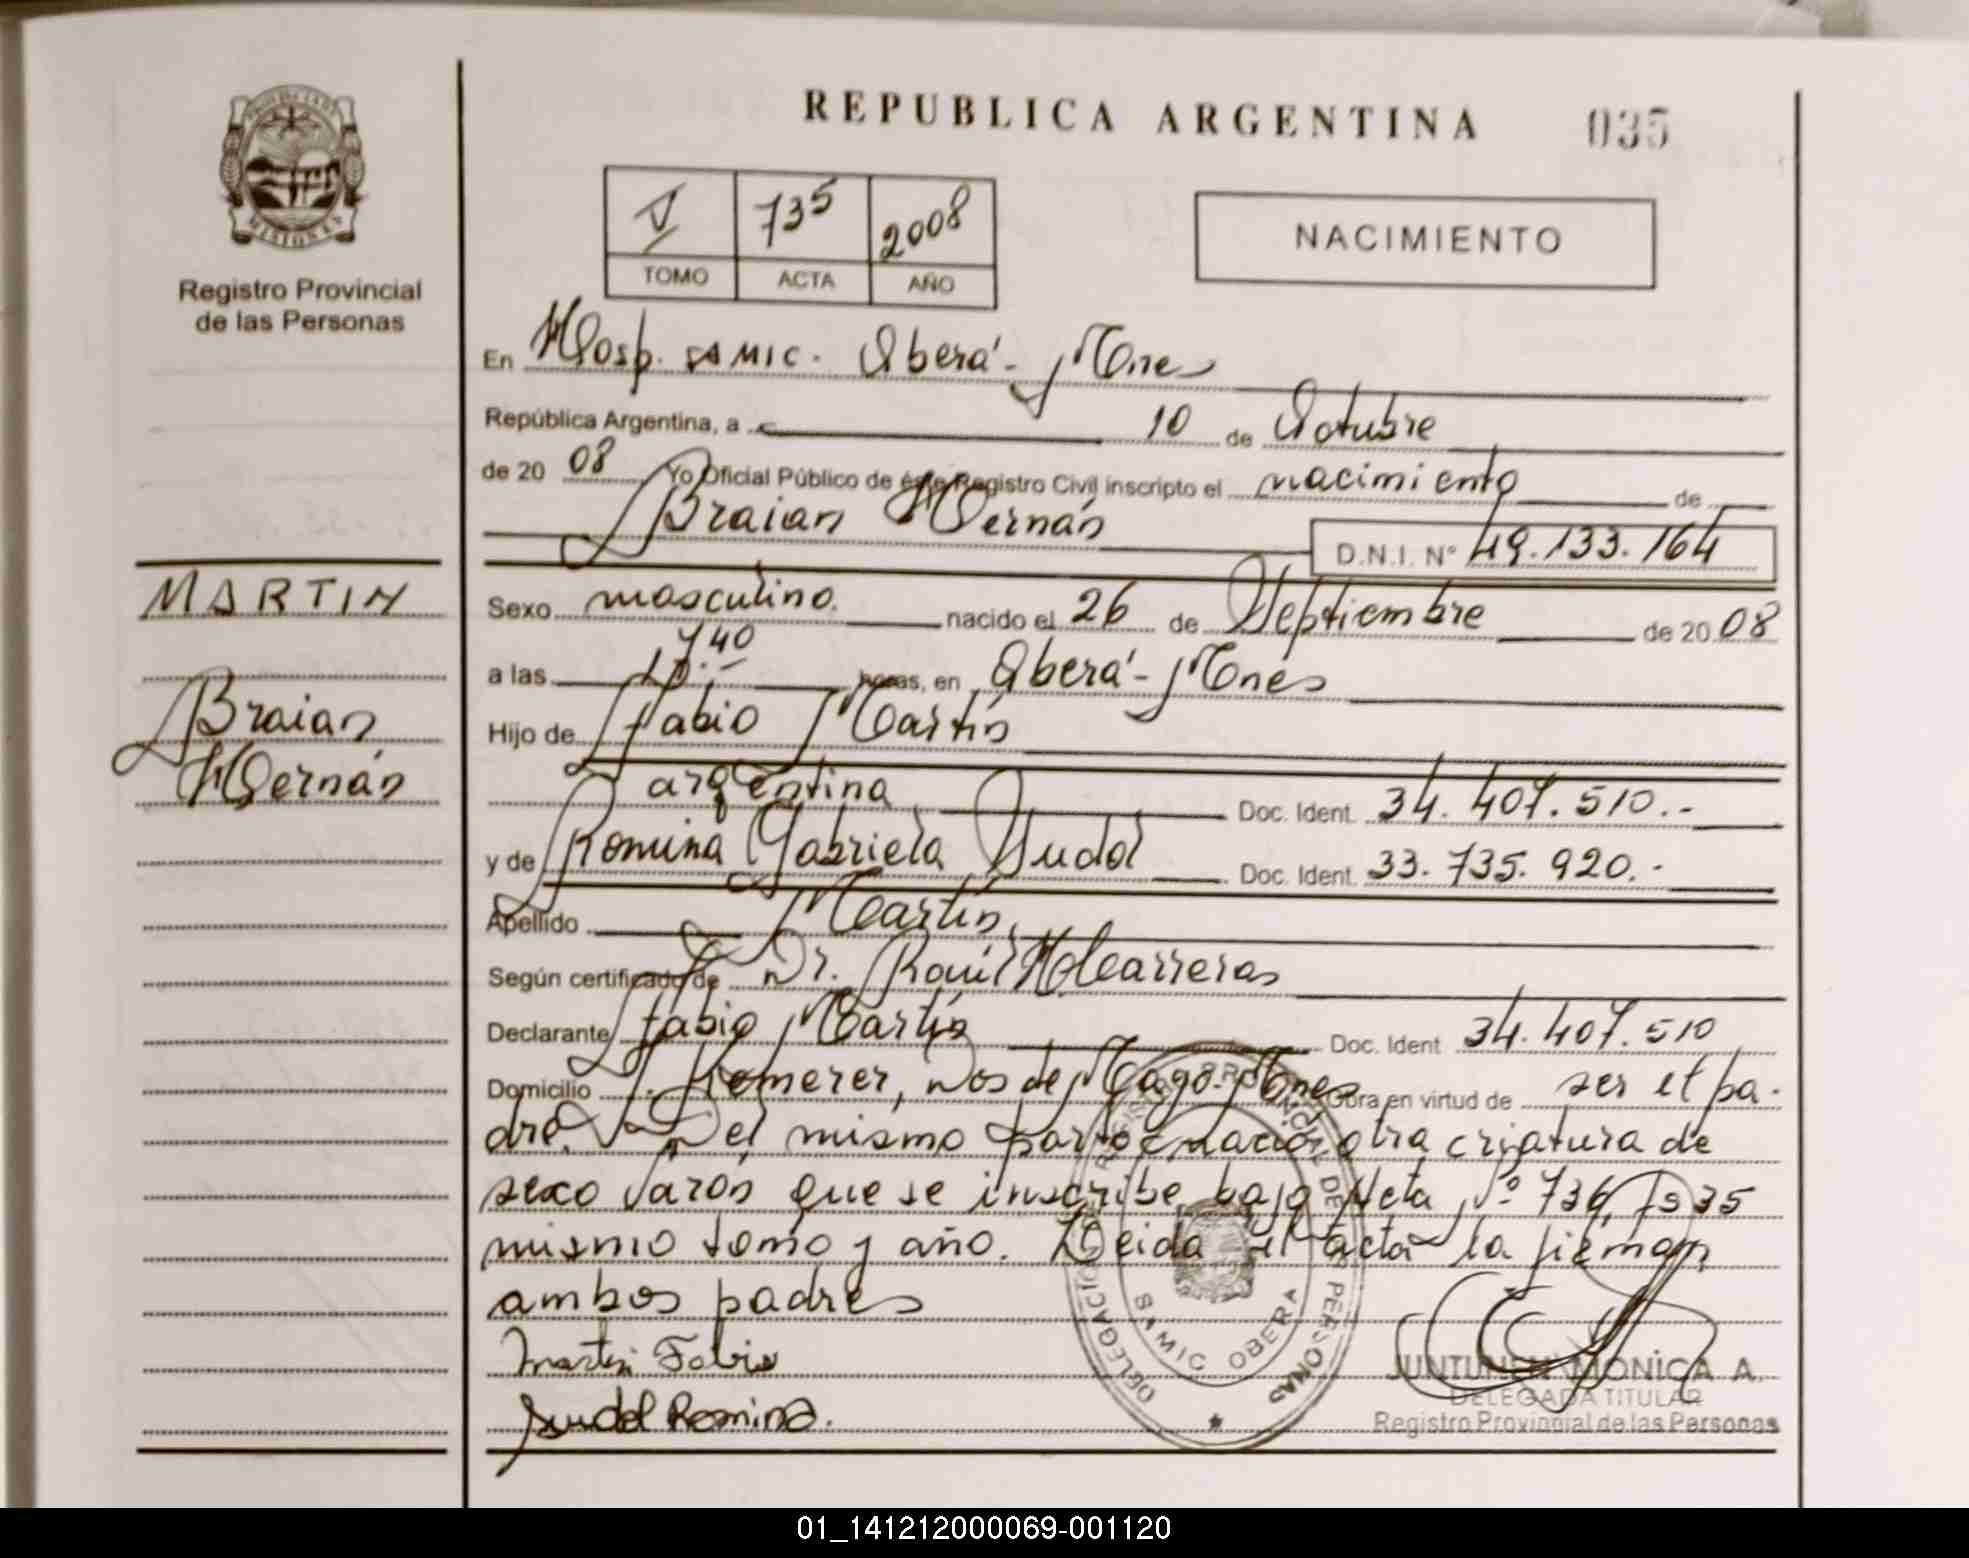 PROVINCIA DE
MISIONES
Registro Provincial
de las Personas
REPUBLICA ARGENTINA 035
V 735 2008
TOMO ACTA AÑO
NACIMIENTO
En Hosp. SAMIC. Oberá - Mnes
República Argentina, a 10 de Octubre
de 20 08 Yo Oficial Público de éste Registro Civil inscripto el nacimiento de
Braian Hernán D.N.I. N° 49.133.164
MARTIN
Braian
Hernán
Sexo masculino. nacido el 26 de Septiembre de 20 08
a las horas, en Oberá - Mnes
Hijo de Fabio Martín
argentina Doc. Ident. 34.407.510.-
y de Romina Gabriela Sudol Doc. Ident. 33.735.920.-
Apellido Martín
Según certificado de Dr. Raúl Carreras
Declarante Fabio Martín Doc. Ident 34.407.510
Domicilio Mnes Obra en virtud de ser el pa-
dre. Del mismo parto nació otra criatura de
sexo varón que se inscribe bajo Acta Nº 736, Fs 35
mismo tomo y año. Leida el acta la firman
ambos padres
Martin Fabio
Sudol Romina.
DELEGACIÓN SAMIC OBERA
JUNTUNEN MONICA A.
DELEGADA TITULAR
Registro Provincial de las Personas
01_141212000069-001120